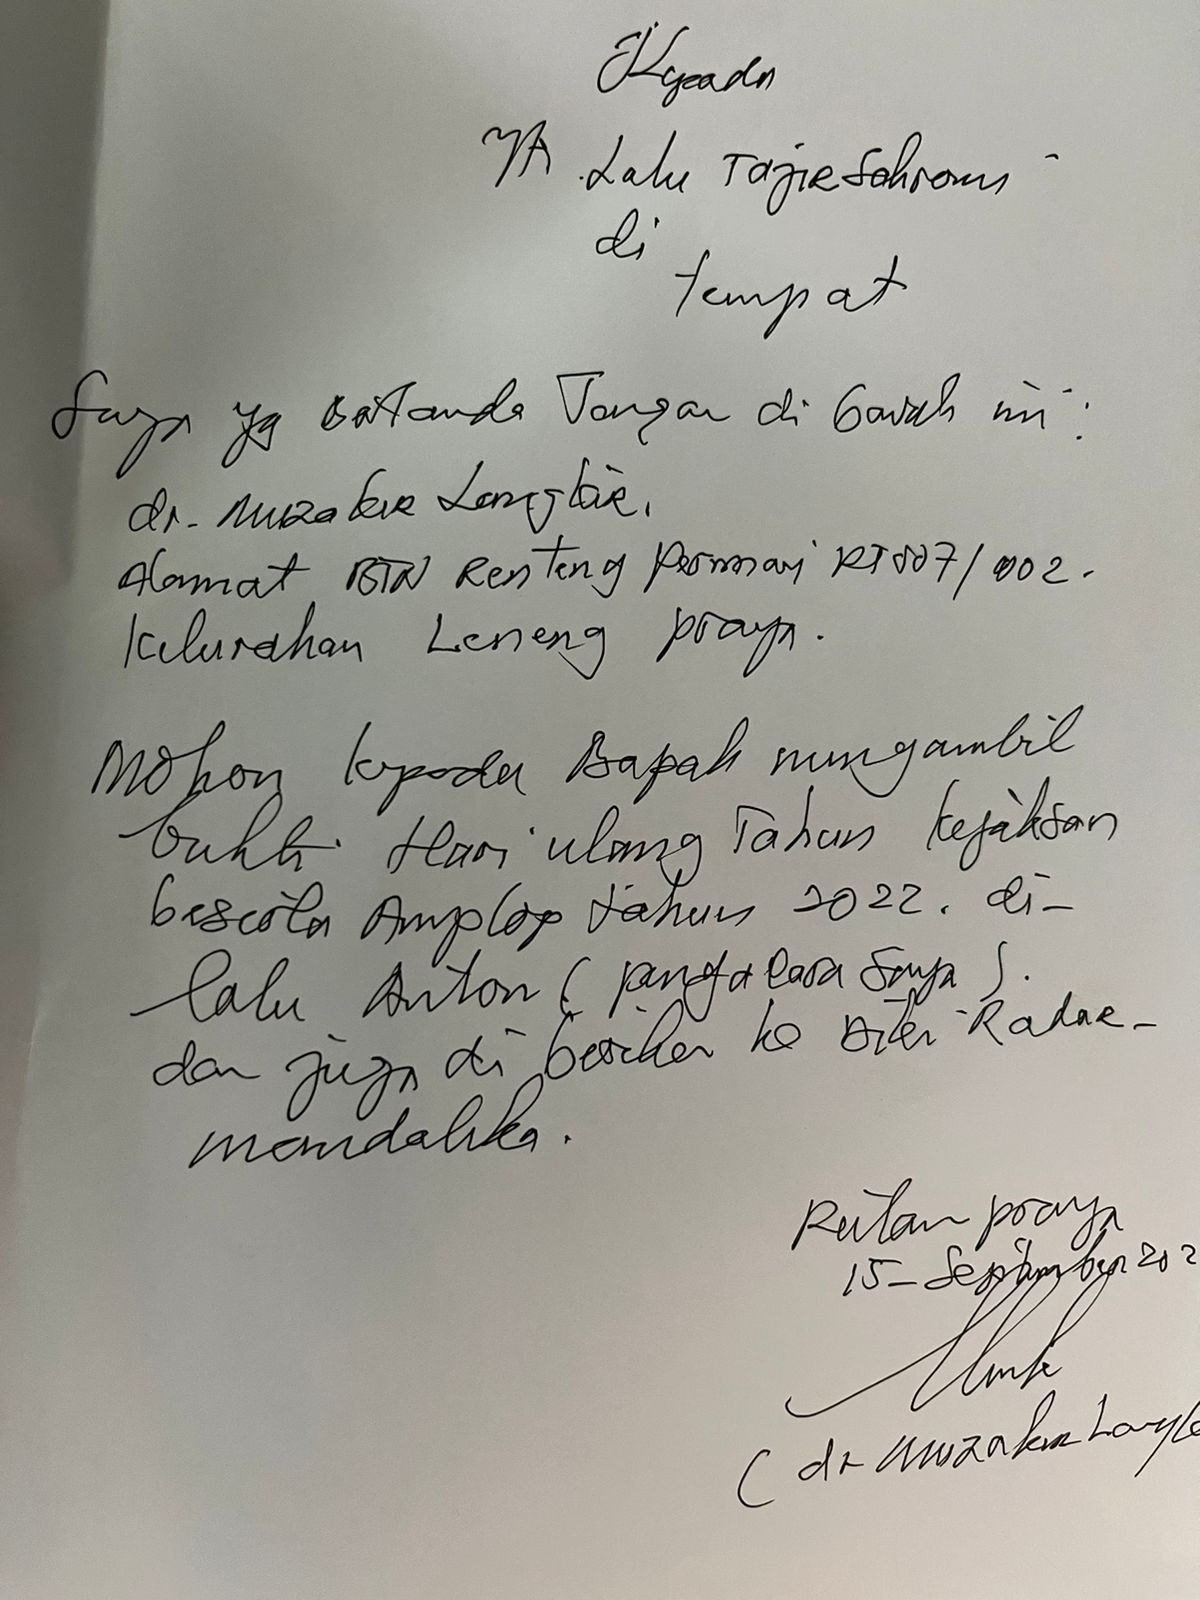 Kepada
Yth Lalu Tajir Sahroni
di
tempat
Saya yg bertanda Tangan di bawah ini :
dr. Muzakir Langkir.
Alamat BTN Renteng Permai RT 007/002.
Kelurahan Leneng Praya.
Mohon kepada Bapak mengambil
bukti Hari ulang Tahun Kejaksan
beserta Amplop tahun 2022. di-
lalu Anton ( pengacara Saya ).
dan juga di berikan ke Radar-
mandalika.
Rutan Praya
15- September 202
( dr Muzakir Langk